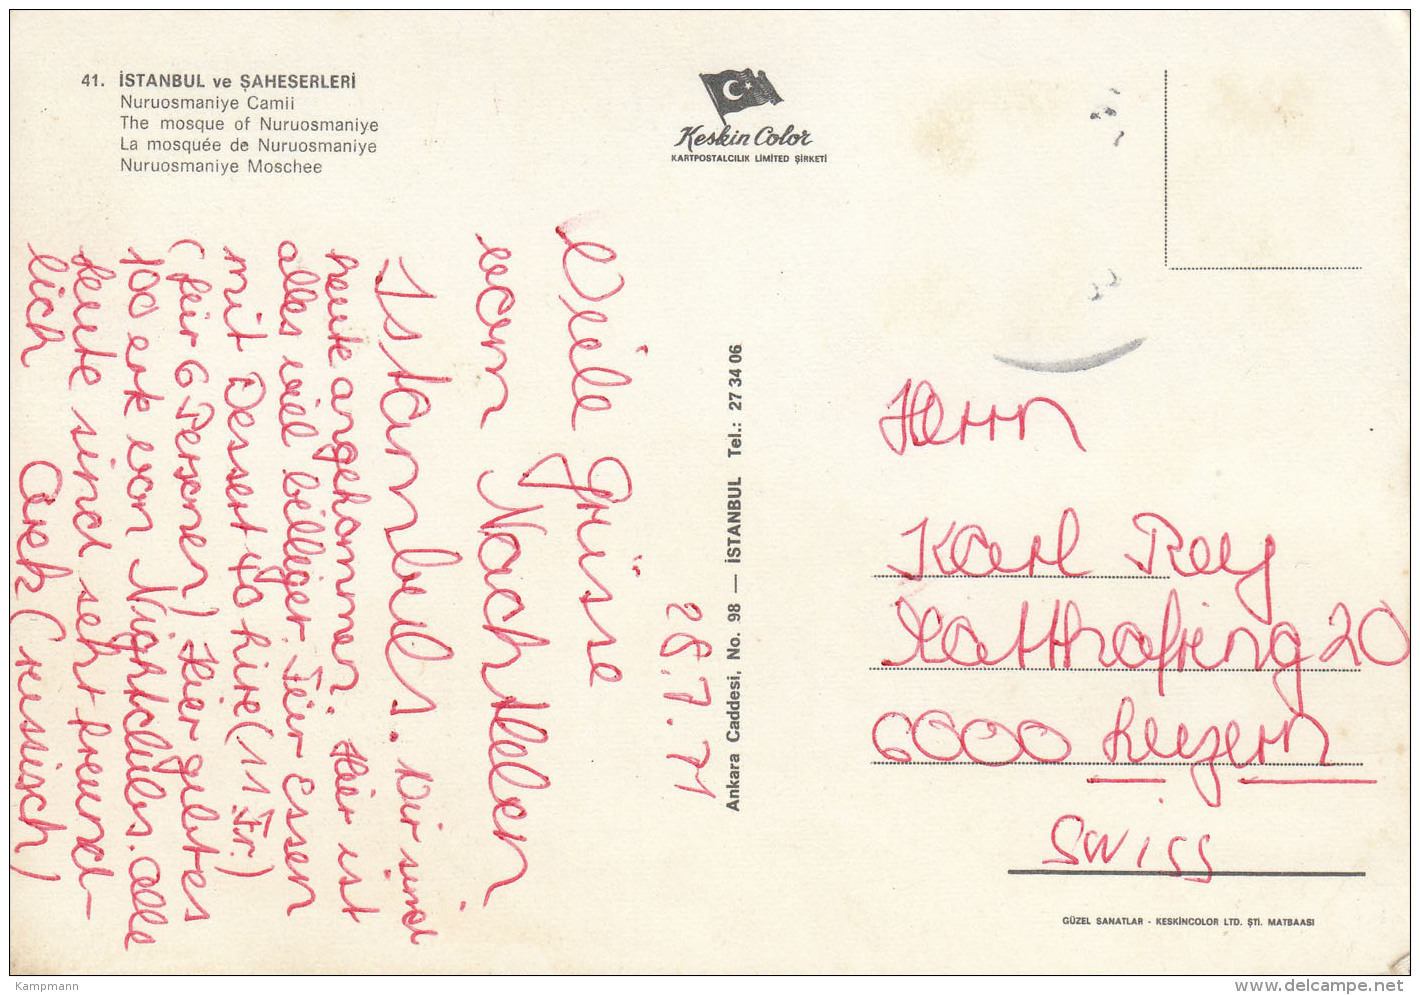 41. İSTANBUL ve ŞAHESERLERİ
Nuruosmaniye Camii
The mosque of Nuruosmaniye
La mosquée de Nuruosmaniye
Nuruosmaniye Moschee
Keskin Color
KARTPOSTALCILIK LIMITED ŞİRKETİ
28.7.71
Viele Grüsse
vom Nachtleben
Istanbuls. Wir sind
heute angekommen. Hier ist
alles viel billiger. Für Essen
mit Dessert 40 hire (11 Fr.)
(für 6 Personen) Hier gibt es
100 erk von Nightclubs. alle
Leute sind sehr freund-
lich
(russisch)
Ankara Caddesi, No. 98 — İSTANBUL Tel.: 27 34 06
Herrn
Karl Rey
20
6000 Luzern
SWISS
GÜZEL SANATLAR - KESKİNCOLOR LTD. ŞTİ. MATBAASI
Kampmann
delcampe.net